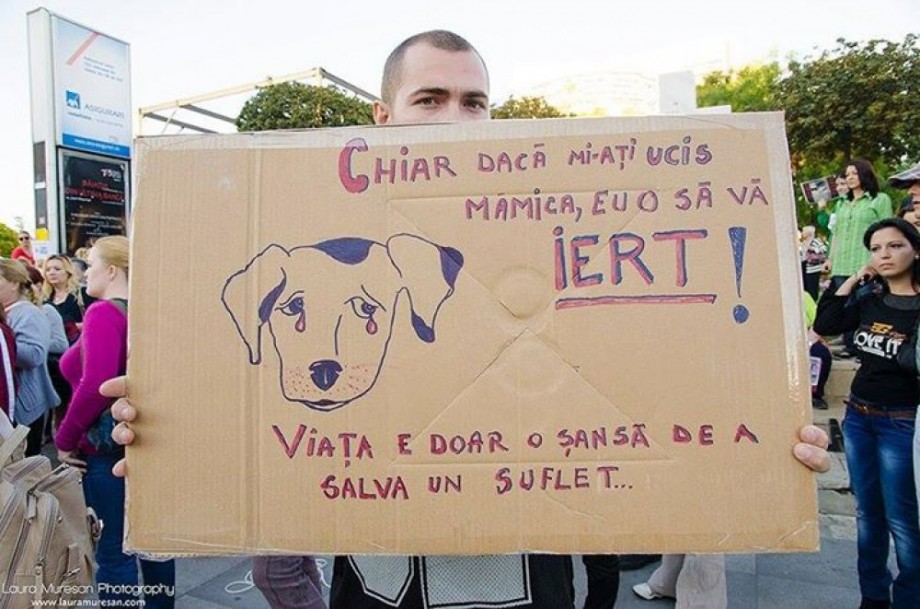 CHIAR DACĂ MI-AȚI UCIS
MĂMICA, EU O SĂ VĂ
IERT!
VIAȚA E DOAR O ȘANSĂ DE A
SALVA UN SUFLET...
ASIGURARI
LOVE IT
Laura Muresan Photography
www.lauramuresan.com